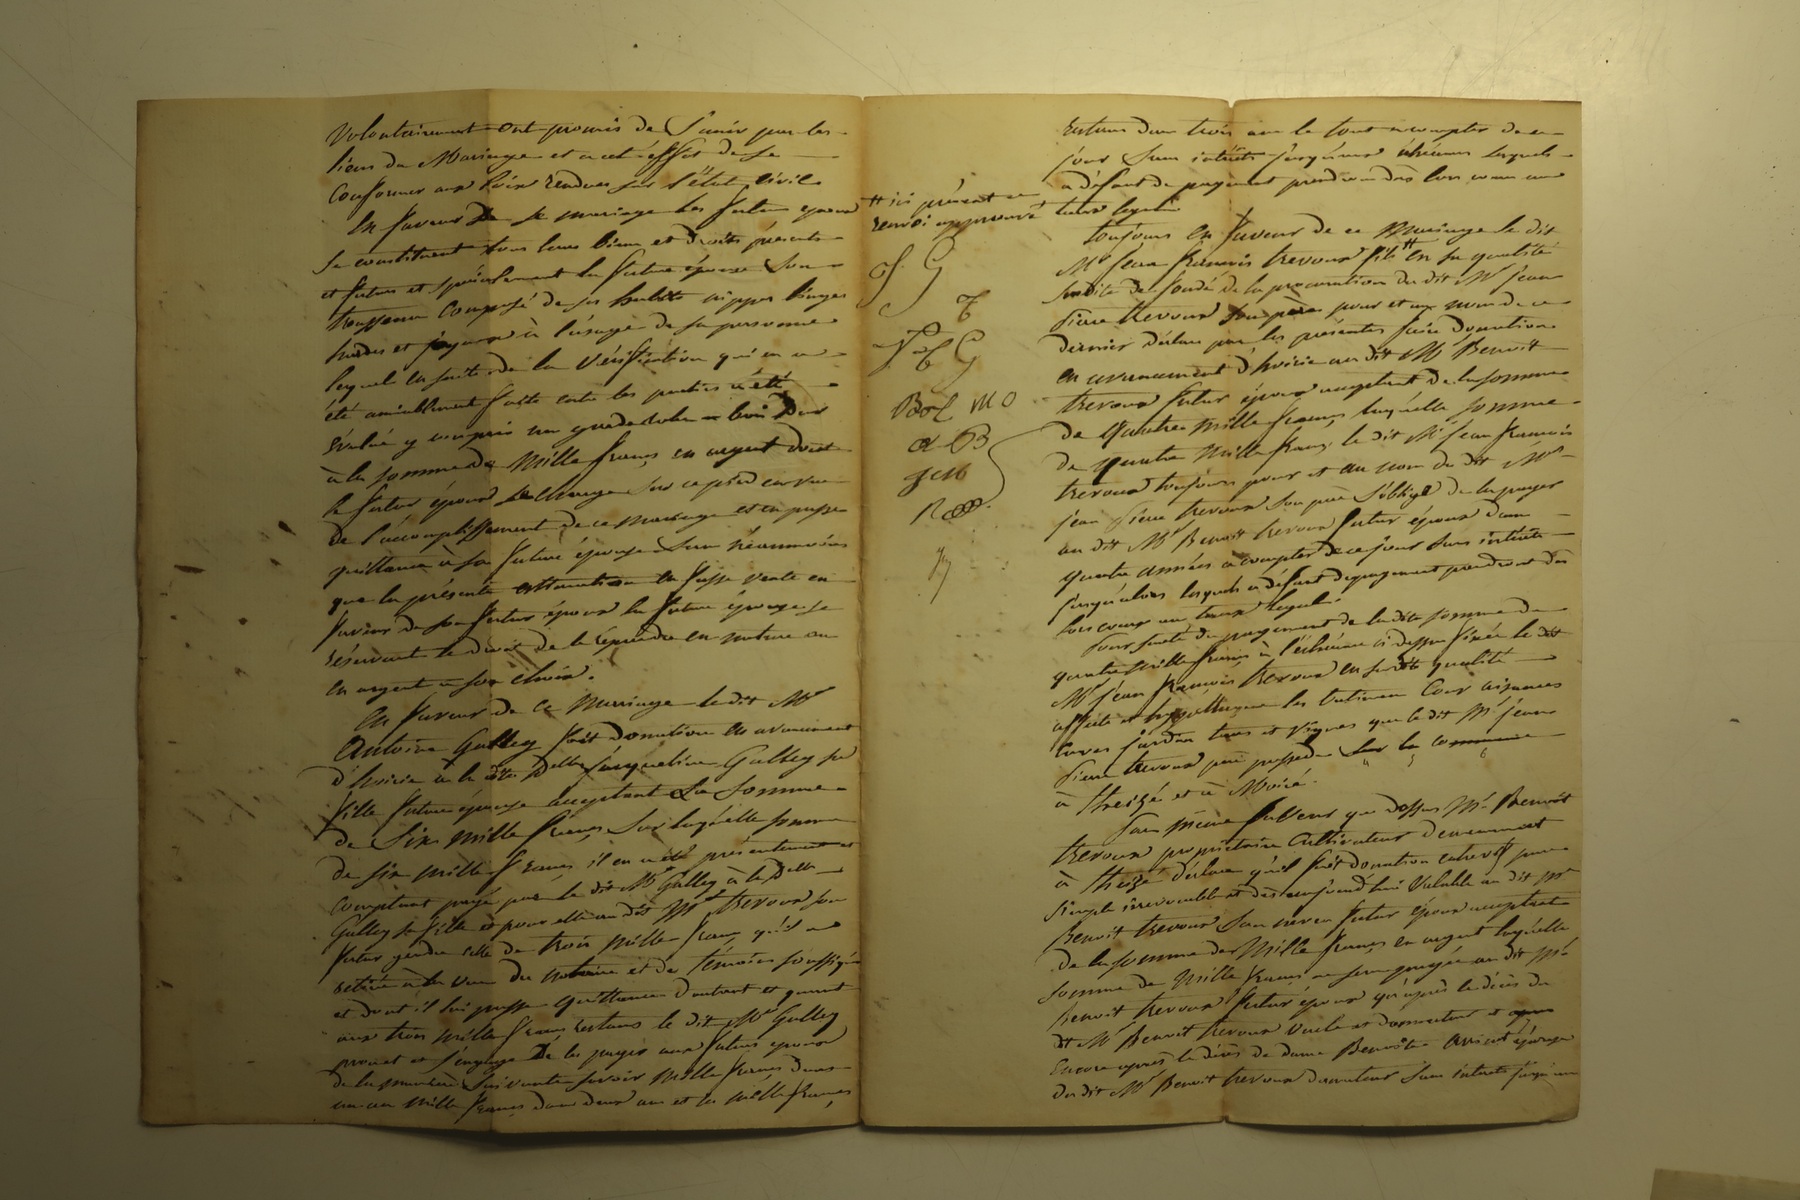 Volontairement ont promis de S'unir par les
liens du Mariage et a cet effet de se
Conformer aux Loix rendues sur l'état Civil
En faveur de ce mariage les futurs epoux
se constituent tous leurs biens et droits présents
et futurs et spécialement la future épouse Son
trousseau Composé de ses habits nippes linges
hardes et joyaux à l'usage de sa personne
lequel en suite de la Vérification qui en a
été amiablement faite entre les parties a été
évalué y compris un garderobe bois dur
à la somme de Mille francs en argent dont
le futur époux se charge sur ce pied en vue
de l'accomplissement de ce mariage et en passe
quittance à sa future épouse Sans néanmoins
que la présente estimation en fasse vente en
faveur de son futur époux la future épouse se
réservant le droit de le reprendre en nature ou
en argent a son choix.
En faveur de ce Mariage le dit Mr
Antoine Galley fait donation en avancement
d'hoirie à la dite Delle Jacqueline Galley sa
fille future épouse acceptant La Somme
de Six Mille francs, Sur laquelle somme
de six mille francs il en a été présentement et
comptant payé par le dit Mr Galley à la Delle
Galley sa fille et pour elle au dit Mr Trevoux son
futur gendre celle de trois Mille francs qu'il a
retirée à la vue du notaire et des témoins soussignés
et dont il lui passe quittance d'autant et quant
aux trois Mille francs restans le dit Mr Galley
promet et s'engage de les payer aux futurs epoux
de la manière Suivante savoir Mille francs dans
un an Mille francs dans deux ans et les mille francs
restans dans trois ans le tout a compter de ce
jour Sans intérêts jusqu'aux échéances lesquels
a défaut de payement prendront dès lors cours au
taux legal.
# ici présent
renvoi approuvé
J. G
T
J T G
Bol M O
a B
JCM
Toujours en faveur de ce Mariage le dit
Mr Jean François Trevoux fils # en sa qualité
susdite de fondé de la procuration du dit Mr Jean
Pierre Trevoux Son père pour et au nom de ce
dernier déclare par les présentes faire donation
en avancement d'hoirie au dit Mr Benoit
Trevoux futur époux acceptant de la somme
de Quatre Mille francs, laquelle somme
de quatre Mille francs le dit Mr Jean François
Trevoux toujours pour et au nom du dit Mr
Jean Pierre Trevoux Son père S'oblige de la payer
au dit Mr Benoit Trevoux futur époux dans
quatre années a compter de ce jour Sans intérêts
jusqu'alors lesquels a défaut de payement prendront dès
lors cours au taux legal.
Pour sureté du payement de la dite somme de
quatre Mille francs à l'échéance ci dessus fixée le dit
Mr Jean François Trevoux en sa dite qualité
affecte et hypothèque les batimens Cour aisances
Caves jardin terres et Vignes que le dit Mr Jean
Pierre Trevoux père possède sur la commune
à Theizé et à Moiré.
Par même faveur que dessus Mr Benoit
Trevoux propriétaire Cultivateur demeurant
à Theizé déclare qu'il fait donation entrevifs pure
simple irrevocable et dès aujourd'hui Valable au dit Mr
Benoit Trevoux Son neveu futur époux acceptant
de la somme de Mille francs en argent laquelle
somme de Mille francs ne sera payée au dit Mr
Benoit Trevoux futur époux qu'après le décès du
dt Mr Benoit Trevoux oncle et donateur et
Encore après le décès de dame Benoite épouse
du dit Mr Benoit Trevoux donateur Sans intérêts jusqu'au